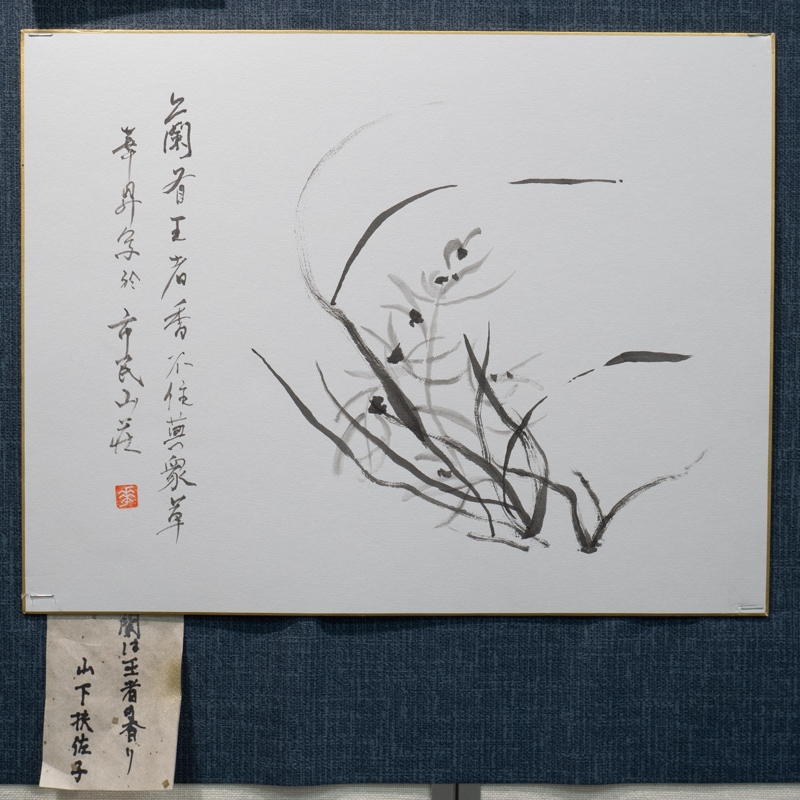 蘭有王者香不住与衆草
華昇写於市民山荘
華
蘭は王者の香り
山下扶佐子